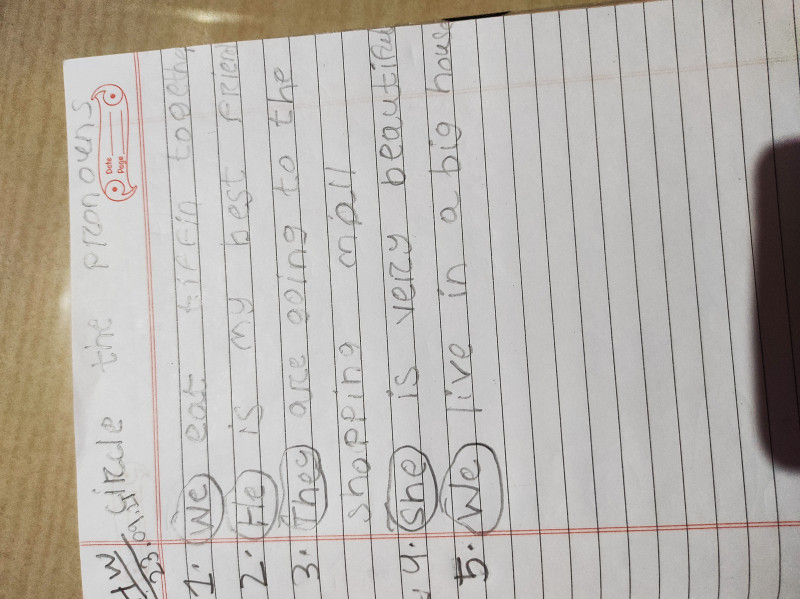 HW
23.09.21
Circle the pronouns
Date
Page
1. We eat tiffin togethe
2. He is my best friend
3. They are going to the
shopping mall
4. She is very beautiful
5. We live in a big house